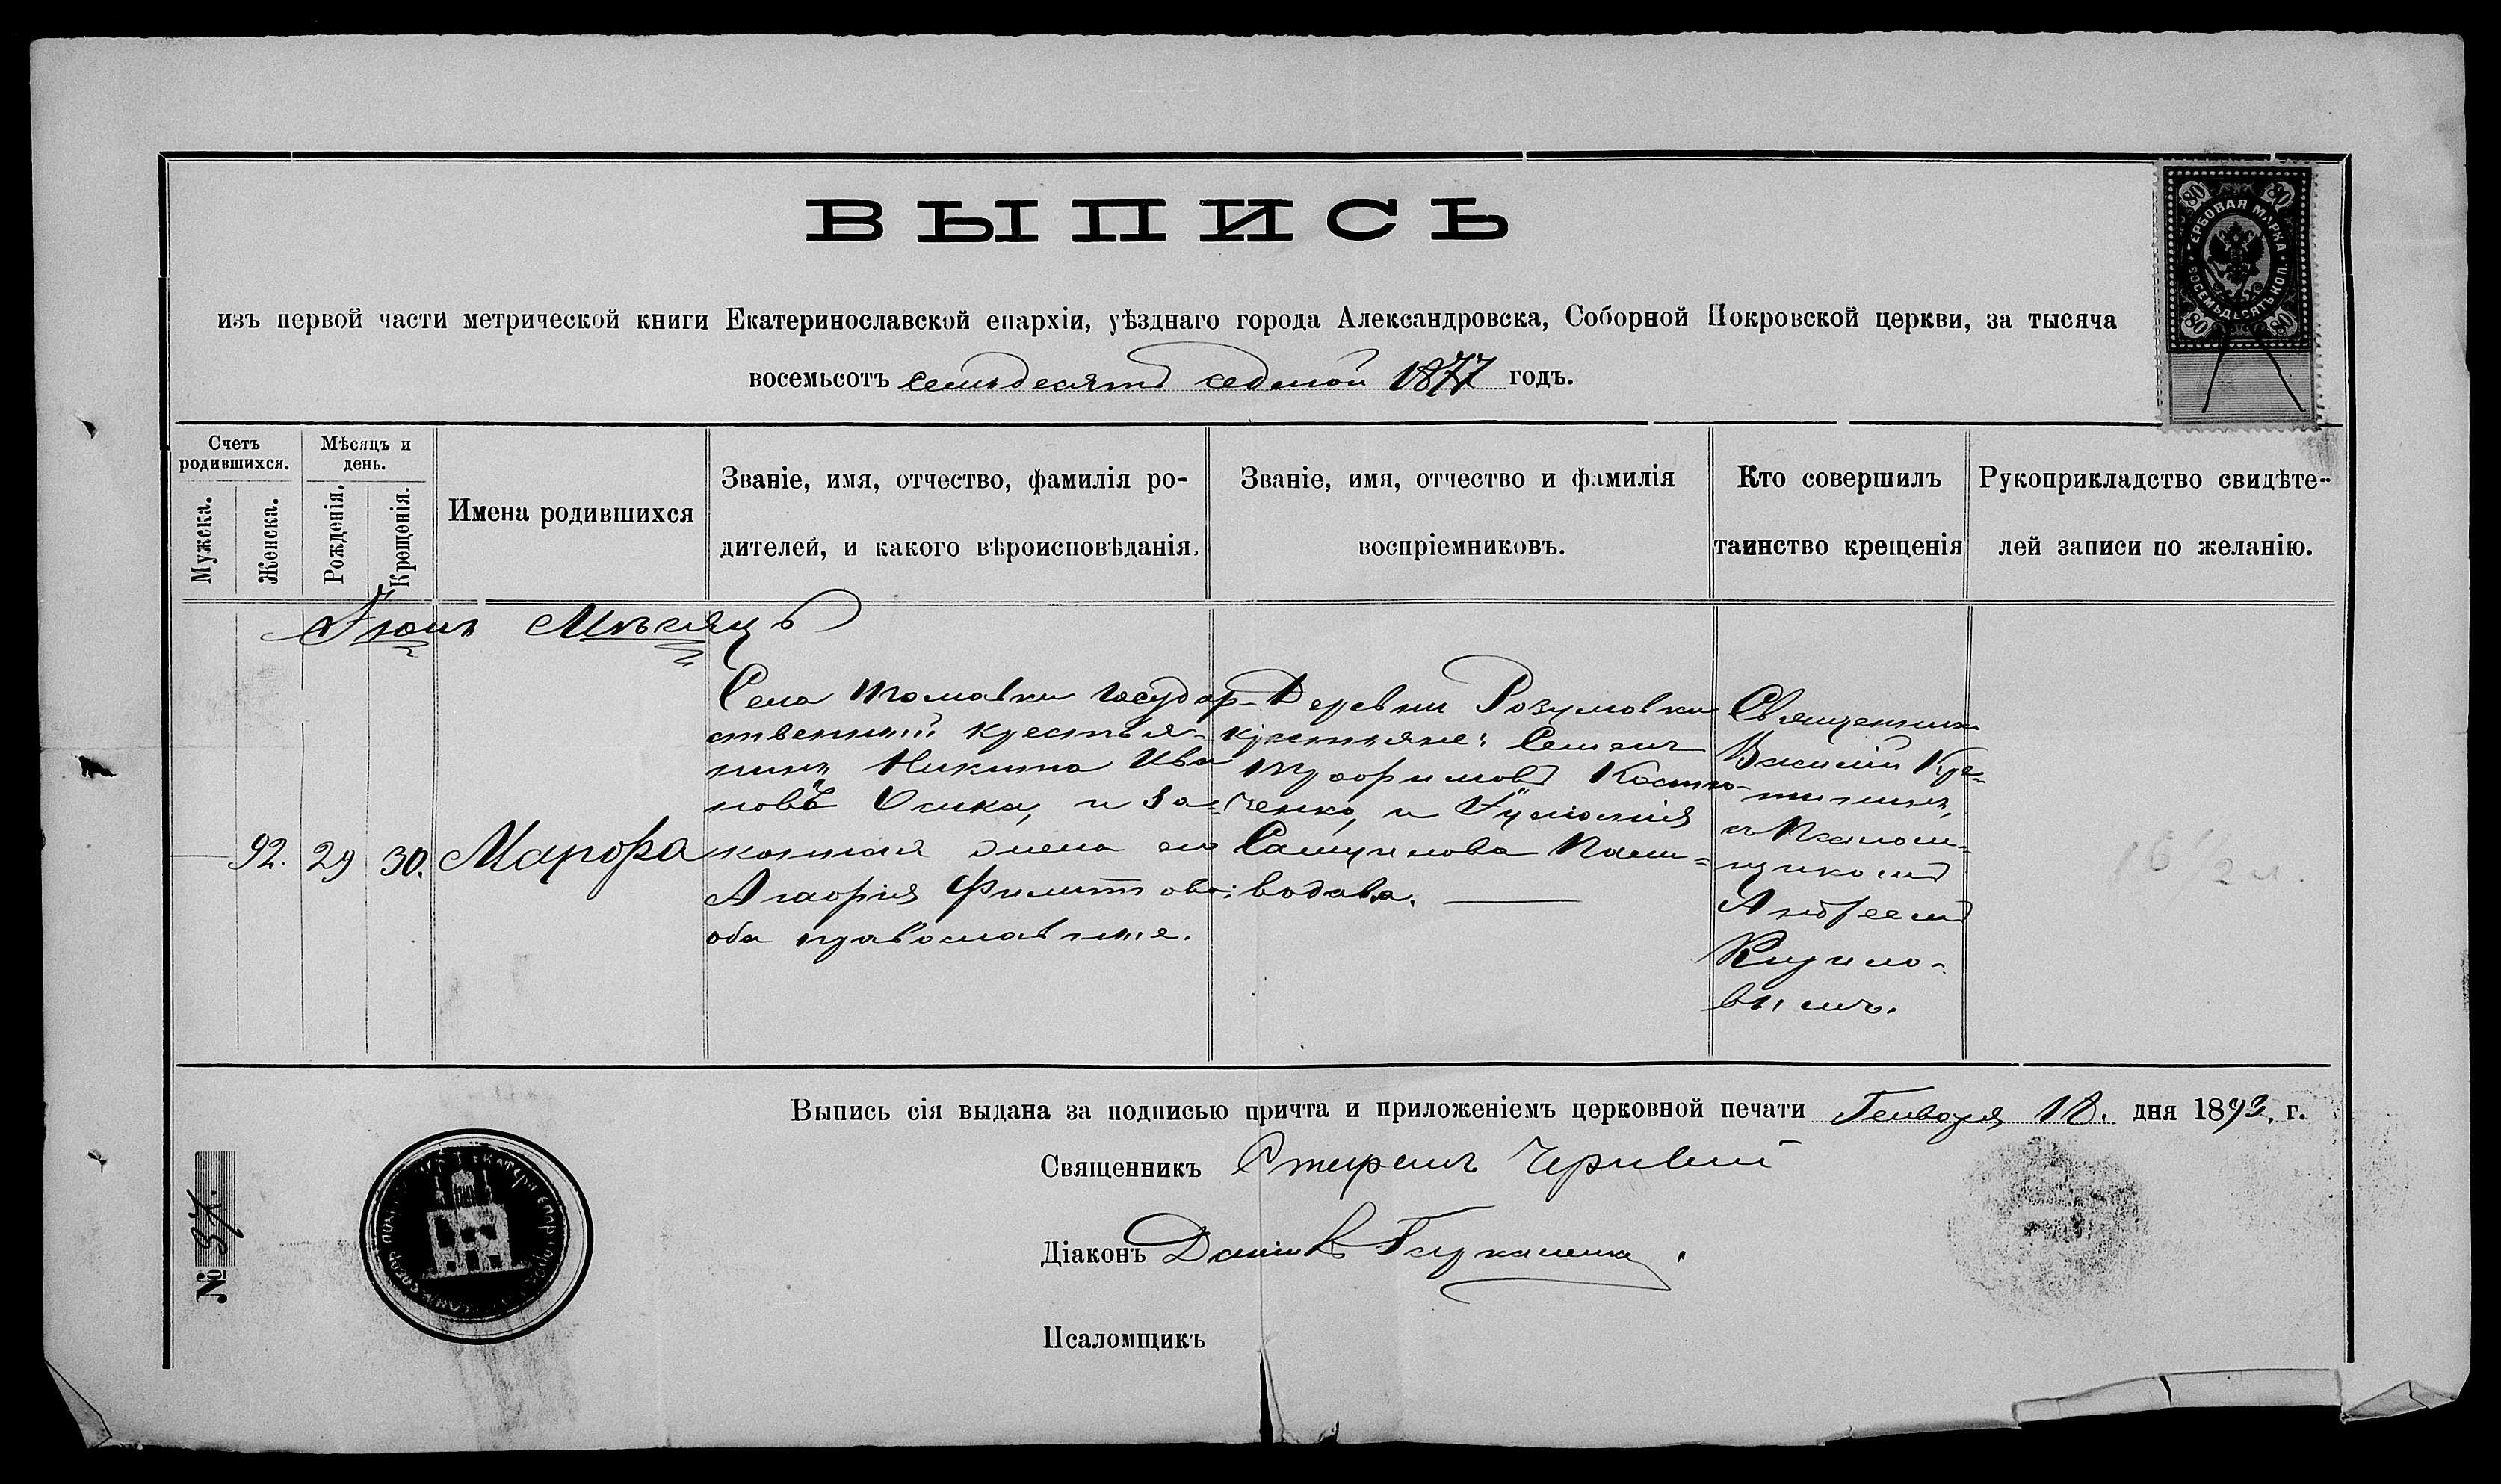 ВЫПИСЬ
изъ первой части метрической книги Екатеринославской епархіи, уѣзднаго города Александровска, Соборной Покровской церкви, за тысяча
восемьсотъ семьдесятъ седьмой 1877 годъ.
ГЕРБОВАЯ МАРКА
ВОСЕМЬДЕСЯТЪ КОП.
80 80
80 80
Счетъ родившихся.
Мужеска.
Женска.
Мѣсяцъ и день.
Рожденія.
Крещенія.
Имена родившихся
Званіе, имя, отчество, фамилія ро-
дителей, и какого вѣроисповѣданія.
Званіе, имя, отчество и фамилія
воспріемниковъ.
Кто совершилъ
таинство крещенія
Рукоприкладство свидѣте-
лей записи по желанію.
Іюнь Мѣсяцъ
92. 29 30. Марфа
Села Томаковки государ-
ственный крестья-
нинъ Никита Ива
новъ Осика, и за-
конная жена его
Агафія Филиппова:
оба православные.
Деревни Розумовки
крестьяне: Семенъ
Трофимовъ Костю-
ченко, и
Самуилова Пали-
водова.
Священникъ
Василій
съ Псалом-
щикомъ
Андреемъ
Кирило-
вымъ.
16 1/2 л.
Выпись сія выдана за подписью причта и приложеніемъ церковной печати Генваря 18. дня 1893. г.
Священникъ
Діаконъ
Псаломщикъ
№ 37.